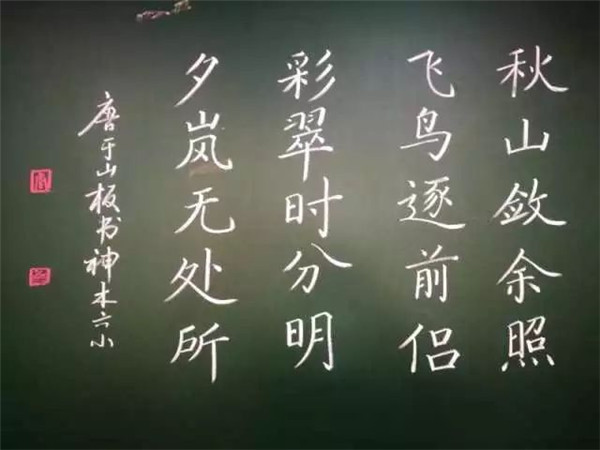 秋山敛余照
飞鸟逐前侣
彩翠时分明
夕岚无处所
唐于山板书神木六小